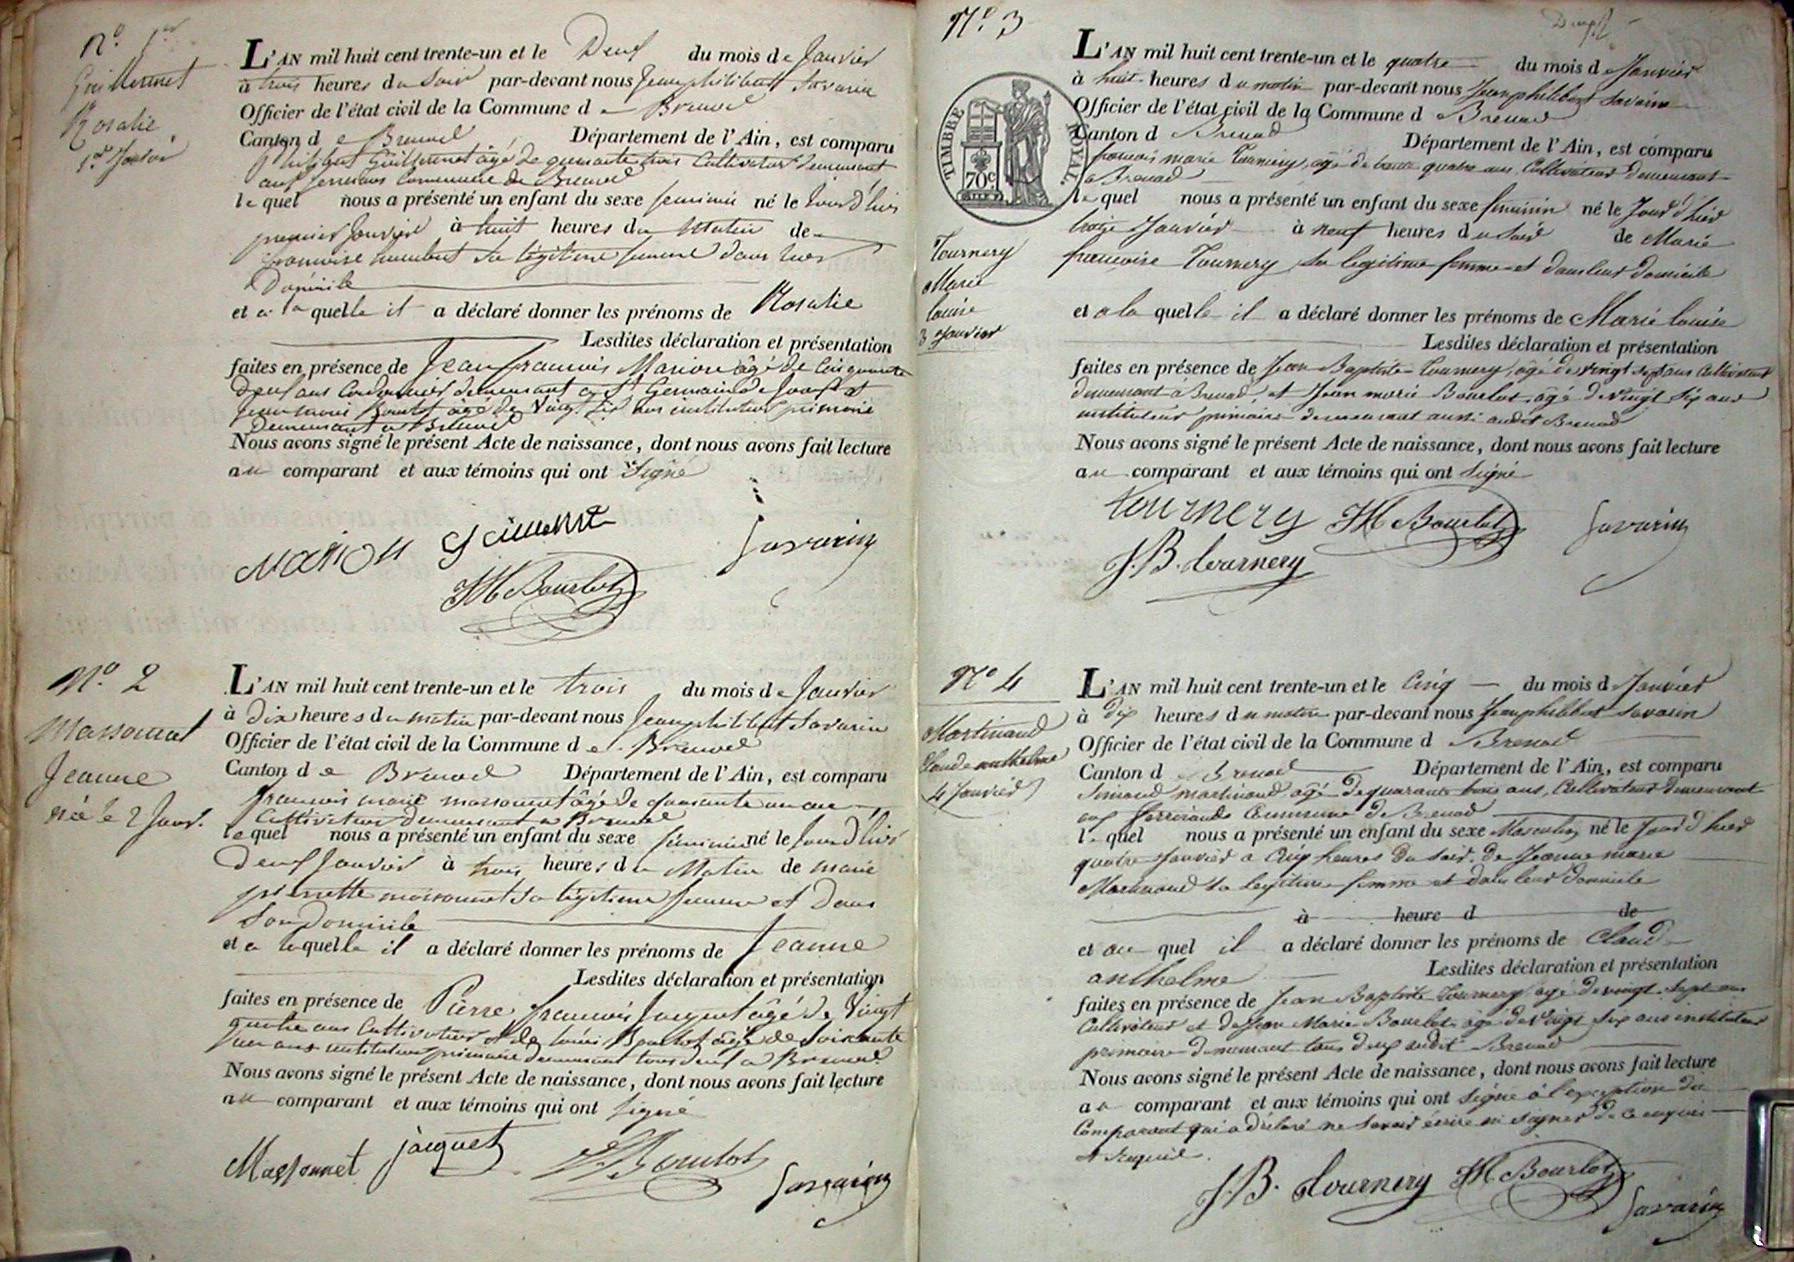 N.º 1er
Guillermet
Rosalie
1er Janvier
L'AN mil huit cent trente-un et le Deux du mois de Janvier
à trois heures du soir par-devant nous Jean philibert Savarin
Officier de l'état civil de la Commune de Brenod
Canton de Brenod Département de l'Ain, est comparu
Guillermet âgé de quarante trois Cultivateur demeurant
aux Commune de Brenod
lequel nous a présenté un enfant du sexe feminin né le Jour d'hier
premier Janvier à huit heures du Matin de
francoise humbert Sa légitime femme dans
Domicile
et a laquelle il a déclaré donner les prénoms de Rosalie
Lesdites déclaration et présentation
faites en présence de Jean francois Marion âgé de Cinquante
Deux ans Cordonnier demeurant a St Germain de Joux et
Jean marie Bourlot âgé de Vingt Six ans instituteur primaire
Demeurant a Brenod
Nous avons signé le présent Acte de naissance, dont nous avons fait lecture
au comparant et aux témoins qui ont Signé
MARION Guillermet Savarin
JM Bourlot
N.º 2
Massonnet
Jeanne
née le 2 Janv.
L'AN mil huit cent trente-un et le trois du mois de Janvier
à Dix heures du matin par-devant nous Jean philibert Savarin
Officier de l'état civil de la Commune de Brenod
Canton de Brenod Département de l'Ain, est comparu
francois marie massonnet âgé de quarante un an
Cultivateur demeurant a Brenod
lequel nous a présenté un enfant du sexe féminin né le Jour d'hier
Deux Janvier à trois heures du Matin de marie
pierrette massonnet Sa légitime femme et Dans
Son Domicile
et a laquelle il a déclaré donner les prénoms de Jeanne
Lesdites déclaration et présentation
faites en présence de Pierre francois Jacquet âgé de Vingt
quatre ans Cultivateur et de Bourlot âgé de Soixante
ans instituteur primaire demeurant tous deux a Brenod
Nous avons signé le présent Acte de naissance, dont nous avons fait lecture
au comparant et aux témoins qui ont signé
Massonnet jacquet Bourlot Savarin
Deux
N.º 3
TIMBRE ROYAL.
70 c.
Tournery
Marie
louise
3 Janvier
L'AN mil huit cent trente-un et le quatre du mois de Janvier
à huit heures du matin par-devant nous Jean philibert Savarin
Officier de l'état civil de la Commune d Brenod
Canton d Brenod Département de l'Ain, est comparu
francois marie Tournery, âgé de trente quatre ans, Cultivateur Demeurant
a Brenod
lequel nous a présenté un enfant du sexe feminin né le Jour d'hier
trois Janvier à neuf heures du soir de Marie
francoise Tournery, sa legitime femme et dans leur domicile
et a la quelle il a déclaré donner les prénoms de Marie louise
Lesdites déclaration et présentation
faites en présence de Jean Baptiste Tournery, âgé de vingt sept ans Cultivateur
demeurant à Brenod, et Jean marie Bourlot âgé de vingt six ans
instituteur primaire demeurant aussi audit Brenod
Nous avons signé le présent Acte de naissance, dont nous avons fait lecture
au comparant et aux témoins qui ont signé
Tournery JM Bourlot Savarin
J.B. tournery
N.º 4
Martinand
Claude anthelme
4 Janvier
L'AN mil huit cent trente-un et le Cinq du mois d Janvier
à dix heures du matin par-devant nous Jean philibert Savarin
Officier de l'état civil de la Commune d Brenod
Canton d Brenod Département de l'Ain, est comparu
martinand âgé de quarante trois ans, Cultivateur demeurant
aux Commune de Brenod
lequel nous a présenté un enfant du sexe Masculin né le Jour d'hier
quatre Janvier a Cinq heures du soir de Jeanne marie
Martinand sa legitime femme et dans leur domicile
à heure d de
et au quel il a déclaré donner les prénoms de Claude
anthelme Lesdites déclaration et présentation
faites en présence de Jean Baptiste Tournery, âgé de vingt sept ans
Cultivateur et de Jean Marie Bourlot âgé de vingt six ans instituteur
primaire demeurant tous deux audit Brenod
Nous avons signé le présent Acte de naissance, dont nous avons fait lecture
au comparant et aux témoins qui ont signé à l'exception du
Comparant qui a déclaré ne savoir écrire ni signer de ce enquis
et Requis.
J.B. tournery JM Bourlot
Savarin